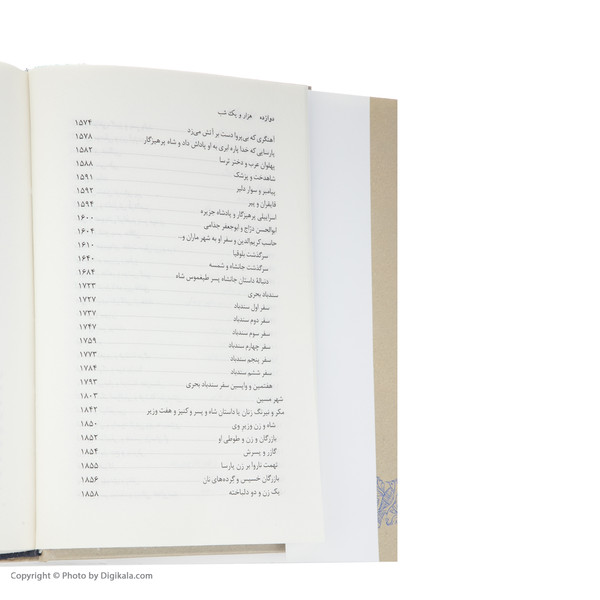 دوازده هزار و یک شب
آهنگری که بی‌پروا دست بر آتش می‌زد ۱۵۷۴
پارسایی که خدا پاره ابری به او پاداش داد و شاه پرهیزگار ۱۵۷۸
پهلوان عرب و دختر ترسا ۱۵۸۲
شاهدخت و پزشک ۱۵۸۸
پیامبر و سوار دلیر ۱۵۹۱
قایقران و پیر ۱۵۹۲
اسراییلی پرهیزگار و پادشاه جزیره ۱۵۹۴
ابوالحسن دراج و ابوجعفر جذامی ۱۶۰۰
حاسب کریم‌الدین و سفر او به شهر ماران و... ۱۶۰۴
سرگذشت بلوقیا ۱۶۱۰
سرگذشت جانشاه و شمسه ۱۶۴۰
دنبالهٔ داستان جانشاه پسر طیغموس شاه ۱۶۸۴
سندباد بحری ۱۷۲۳
سفر اول سندباد ۱۷۲۷
سفر دوم سندباد ۱۷۳۷
سفر سوم سندباد ۱۷۴۷
سفر چهارم سندباد ۱۷۵۹
سفر پنجم سندباد ۱۷۷۳
سفر ششم سندباد ۱۷۸۴
هفتمین و واپسین سفر سندباد بحری ۱۷۹۳
شهر مسین ۱۸۰۳
مکر و نیرنگ زنان یا داستان شاه و پسر و کنیز و هفت وزیر ۱۸۴۲
شاه و زن وزیر وی ۱۸۵۰
بازرگان و زن و طوطی او ۱۸۵۲
گازر و پسرش ۱۸۵۴
تهمت ناروا بر زن پارسا ۱۸۵۵
بازرگان خسیس و گرده‌های نان ۱۸۵۶
یک زن و دو دلباخته ۱۸۵۸
Copyright © Photo by Digikala.com